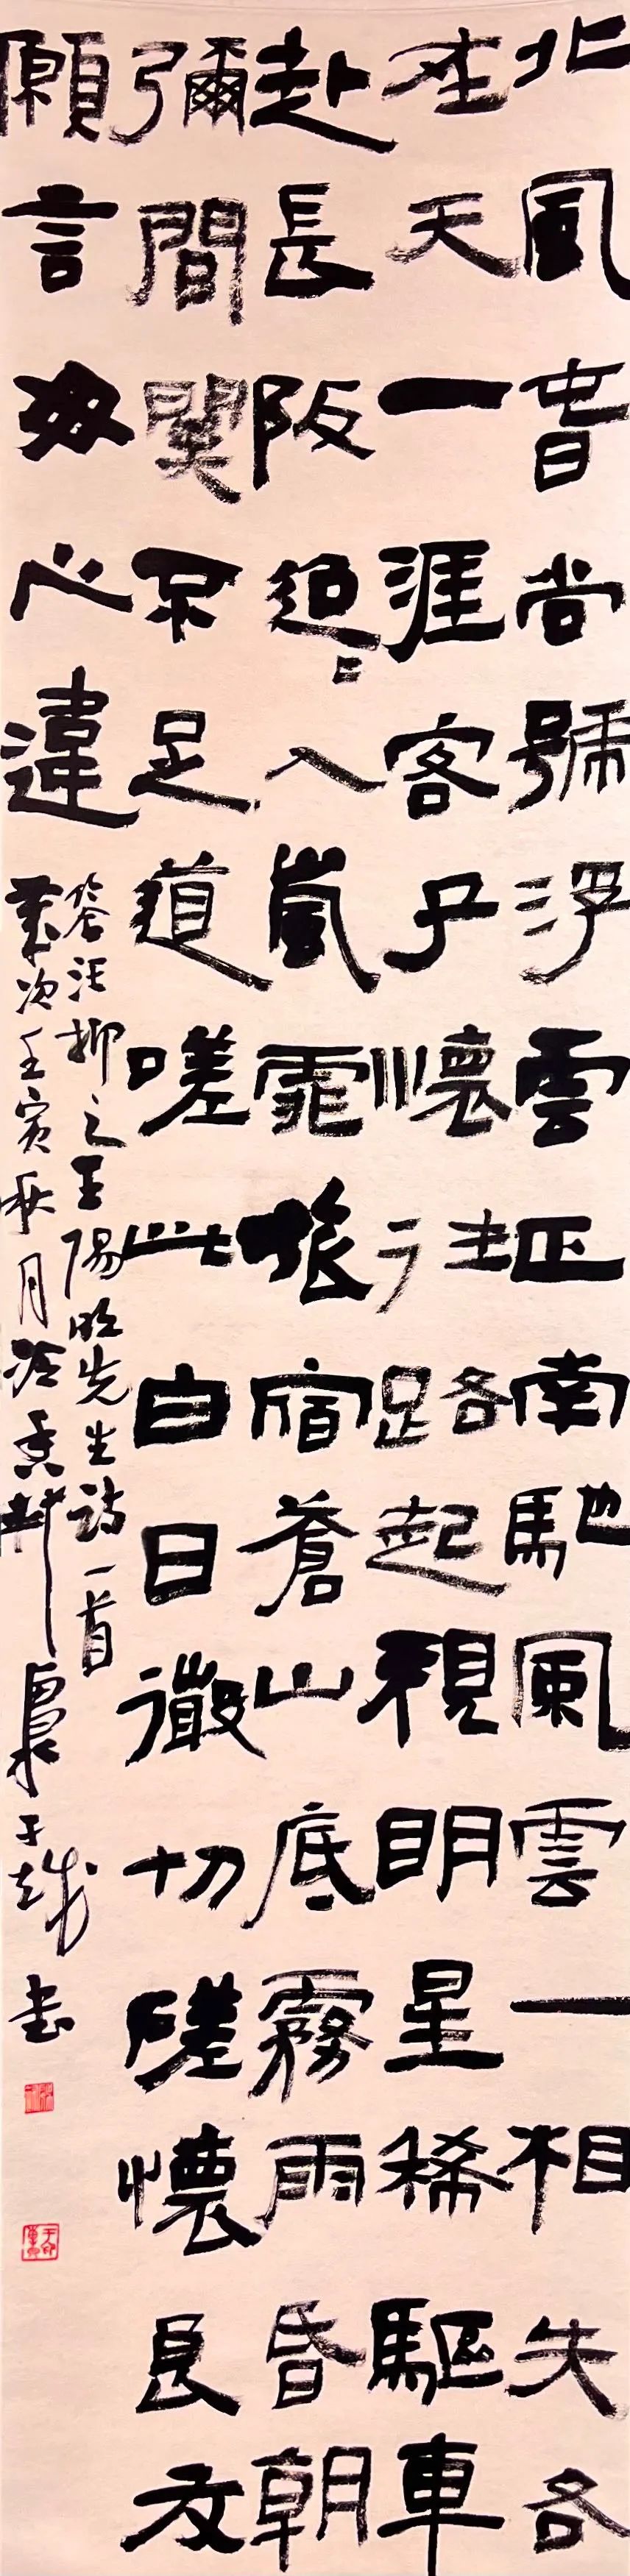 北風春尚號浮雲正南馳風雲一相失各
在天一涯客子懷往路起視明星稀驅車
赴長阪迢〻入嵐霏旅宿蒼山底霧雨昏朝
彌間關不足道嗟此白日微切磋懷良友
願言毋心違
答汪抑之王陽明先生詩一首
歲次壬寅秋月 書